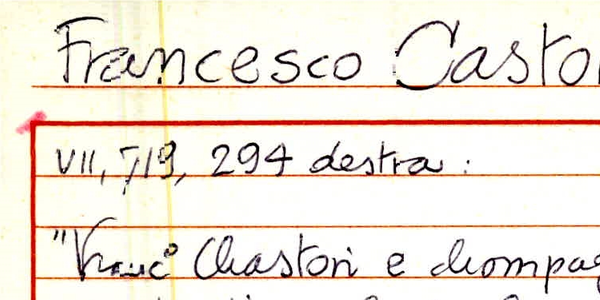 Francesco Casto
VII, 719, 294 destra :
"Franc° Chastori e chompag